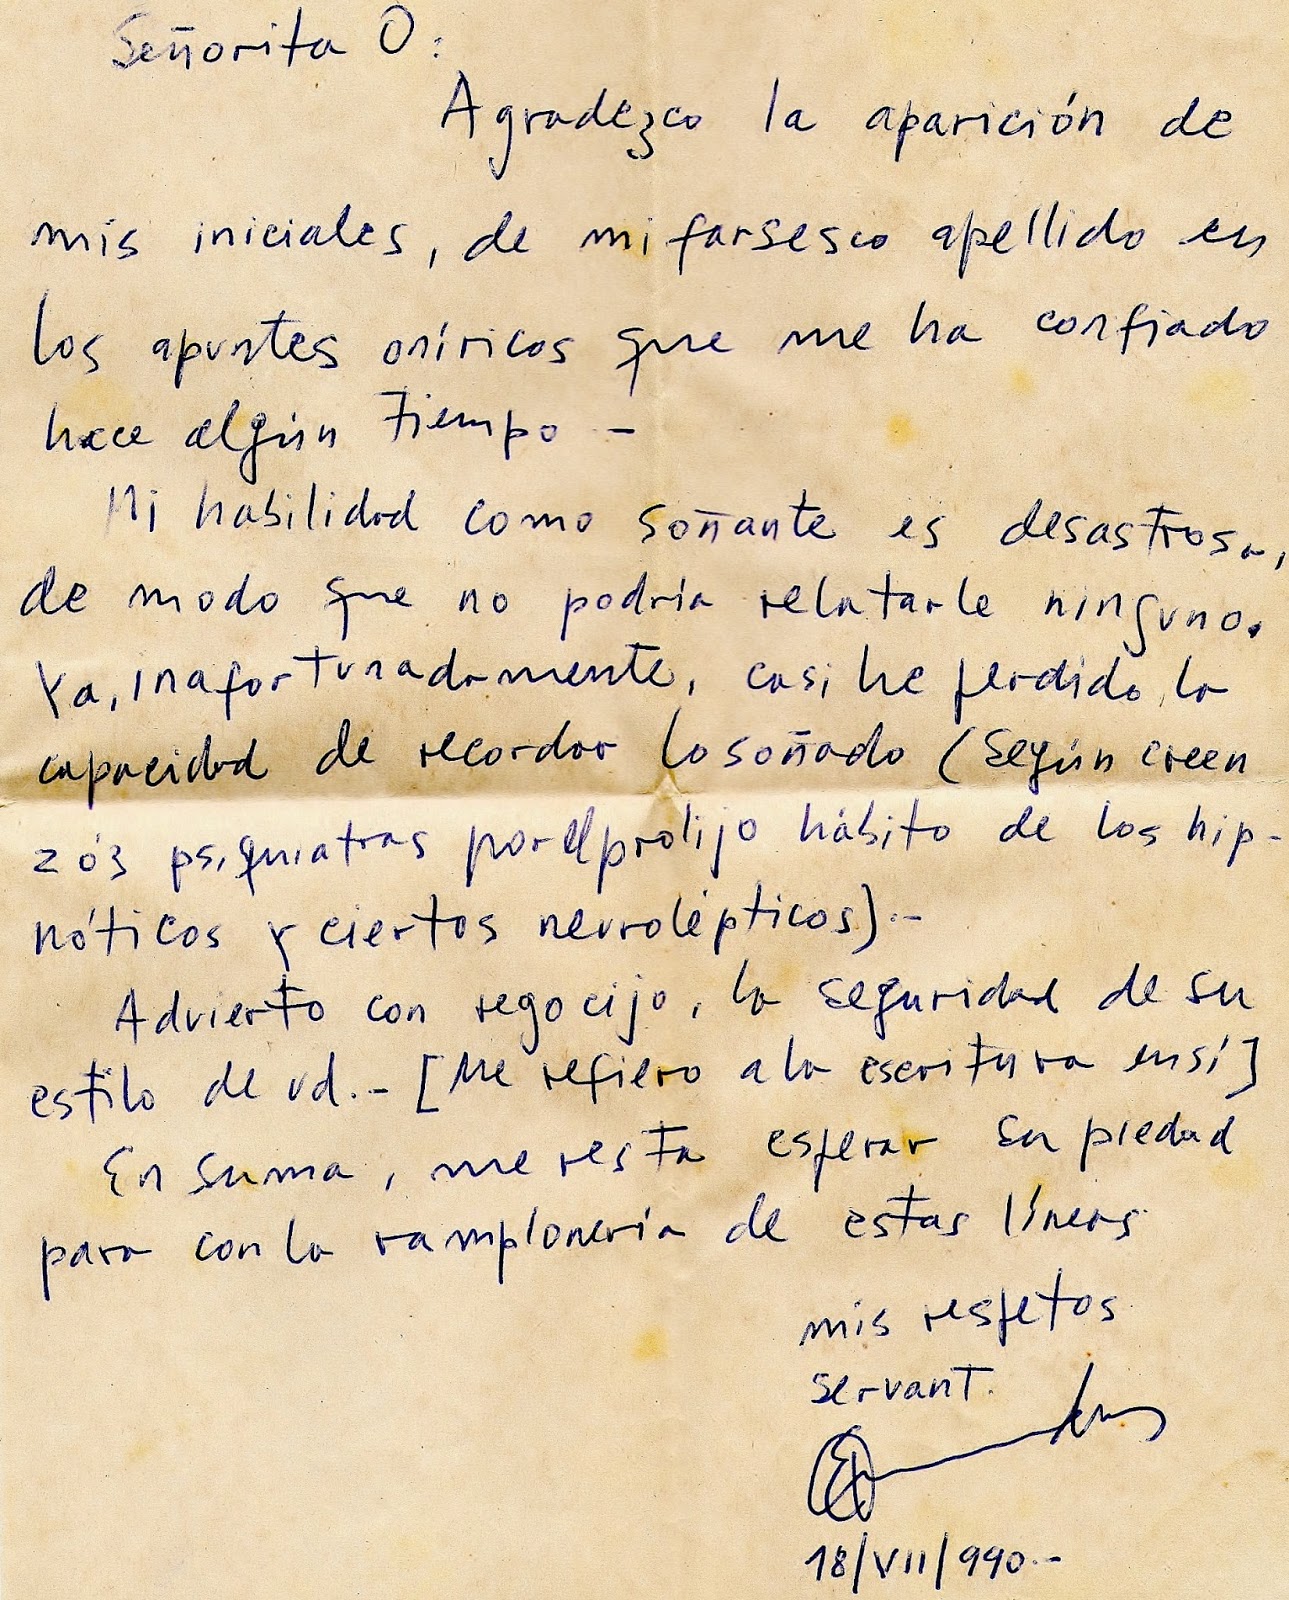 Señorita O:
Agradezco la aparición de
mis iniciales, de mi farsesco apellido en
los apuntes oníricos que me ha confiado
hace algún tiempo –
Mi habilidad como soñante es desastrosa,
de modo que no podría relatarle ninguno.
Ya, inafortunadamente, casi he perdido la
capacidad de recordar lo soñado (según creen
psiquiatras por el prolijo hábito de los hip-
nóticos y ciertos neurolépticos).–
Advierto con regocijo, la seguridad de su
estilo de vd.– [Me refiero a la escritura en sí]
En suma, me resta esperar su piedad
para con la ramplonería de estas líneas
mis respetos
servant.
18/VII/990.–